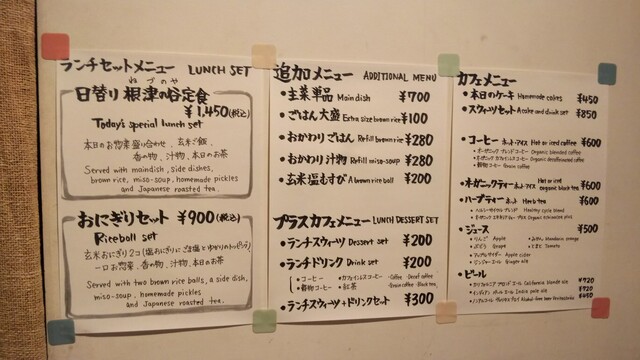 ランチセットメニュー LUNCH SET
ねづのや
日替り 根津の谷定食
¥1,450(税込)
Today's special lunch set
本日のお惣菜盛り合わせ、玄米ご飯
香の物、汁物、本日のお茶
Served with maindish, side dishes,
brown rice, miso-soup, homemade pickles
and Japanese roasted tea.
おにぎりセット ¥900(税込)
Riceball set
玄米おにぎり2コ(塩おにぎりにごま塩とゆかりのトッピング)
一口お惣菜、香の物、汁物、本日のお茶
Served with two brown rice balls, a side dish,
miso-soup, homemade pickles
and Japanese roasted tea.
追加メニュー ADDITIONAL MENU
・主菜単品 Main dish ¥700
・ごはん大盛 Extra size brown rice ¥100
・おかわりごはん Refill brown rice ¥280
・おかわり汁物 Refill miso-soup ¥280
・玄米塩むすび A brown rice ball ¥200
プラスカフェメニュー LUNCH DESSERT SET
・ランチスウィーツ Dessert set ¥200
・ランチドリンク Drink set ¥200
・コーヒー ・カフェインレスコーヒー ・Coffee ・Decaf coffee
・穀物コーヒー ・紅茶 ・Grain coffee ・Black tea
・ランチスウィーツ+ドリンクセット ¥300
カフェメニュー
・本日のケーキ Homemade cakes ¥450
・スウィーツセット A cake and drink set ¥850
・コーヒー ホット・アイス Hot or iced coffee ¥600
・オーガニックブレンドコーヒー Organic blended coffee
・オーガニックカフェインレスコーヒー Organic decaffeinated coffee
・穀物コーヒー Grain coffee
・オーガニックティー ホット・アイス Hot or iced organic black tea ¥600
・ハーブティー ホット Herb tea ¥600
・ヘルシーサイクルブレンド Healthy cycle blend
・ジュース ¥500
・りんご Apple ・みかん Mandarin orange
・ぶどう Grape ・トマト Tomato
・アップルサイダー Apple cider
・ジンジャーエール Ginger ale
・ビール
・カリフォルニア ブロンド エール California blonde ale ¥720
・インディア ペールエール India pale ale ¥720